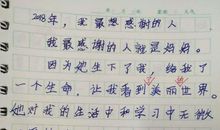 2018年，我最想感谢的人
我最感谢的人就是妈妈。
因为她生下了我，给我了
一个生命，让我看到美丽世界。
她对我的生活中和学习中无微